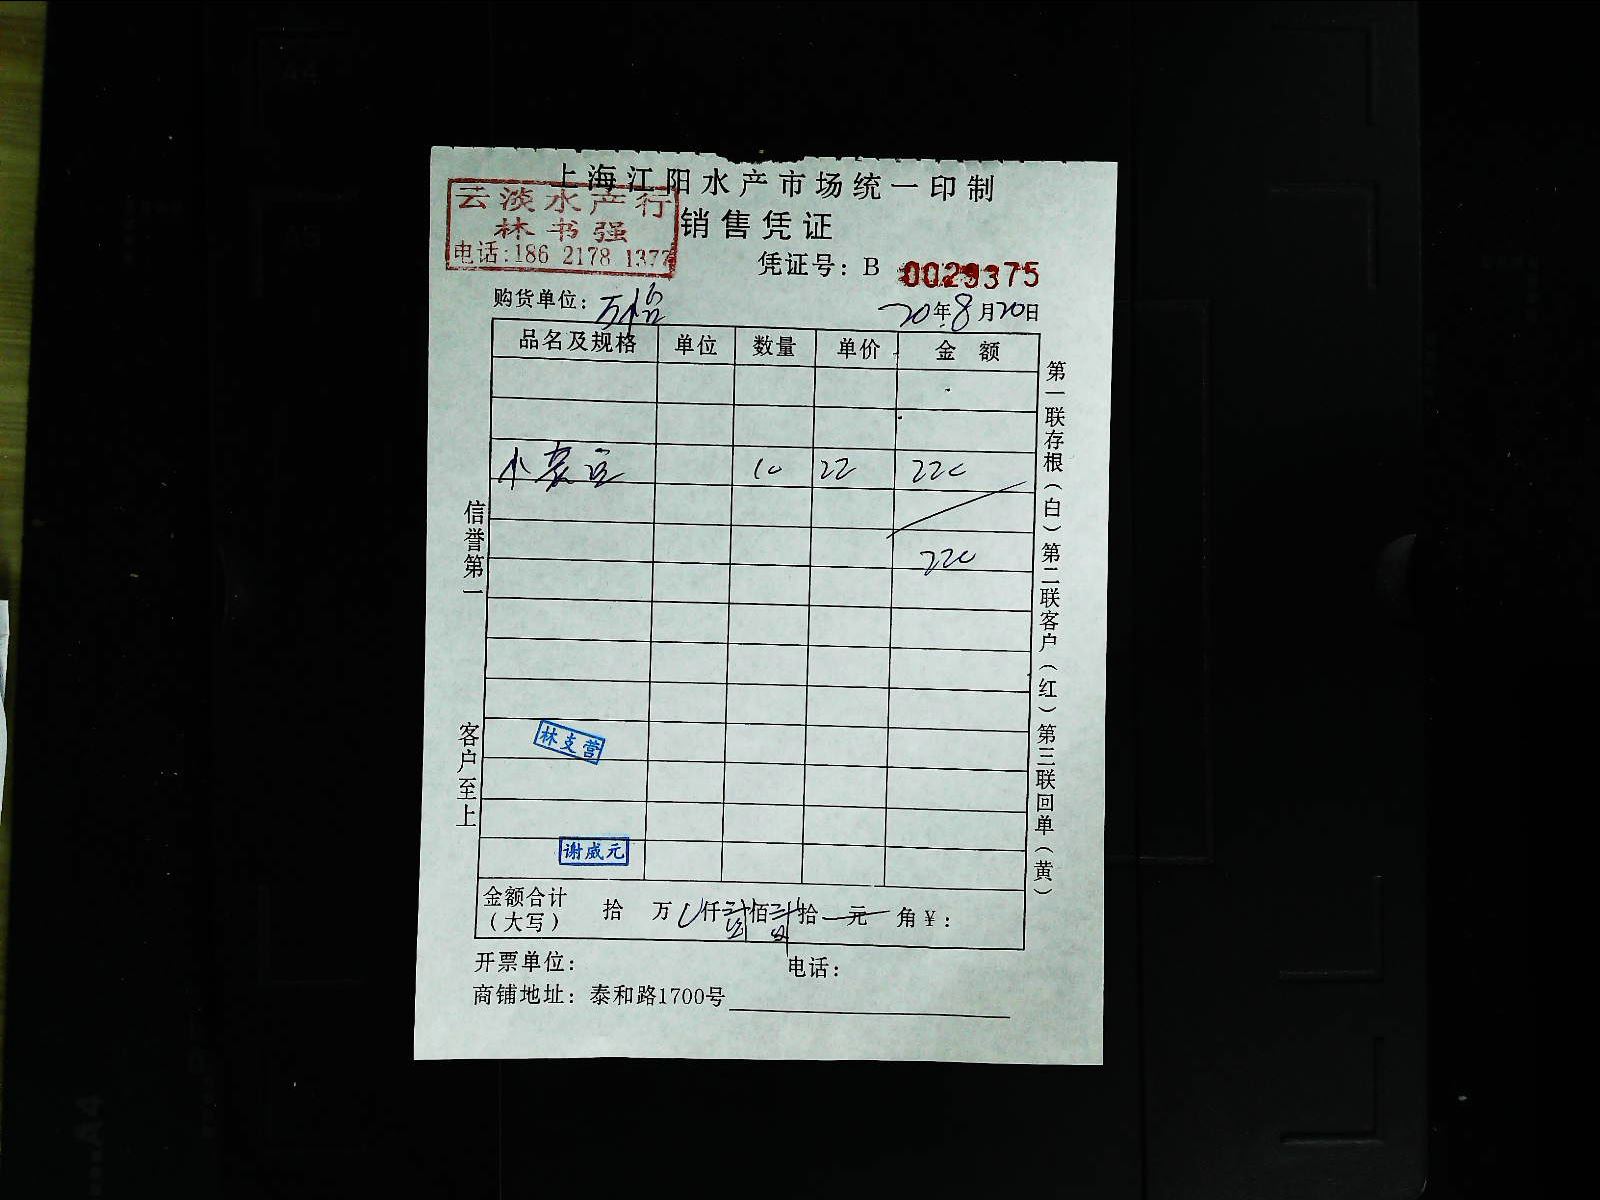 上海江阳水产市场统一印制
云淡水产行
林书强
电话:186 2178 1377
销售凭证
凭证号: B 0029375
购货单位: 万怡
20年8月20日
品名及规格 单位 数量 单价 金额
小 10 22 220
220
信誉第一
客户至上
第一联存根(白)第二联客户(红)第三联回单(黄)
林支营
谢威元
金额合计
(大写) 拾 万 仟 佰 拾 元 角 ¥:
开票单位: 电话:
商铺地址: 泰和路1700号